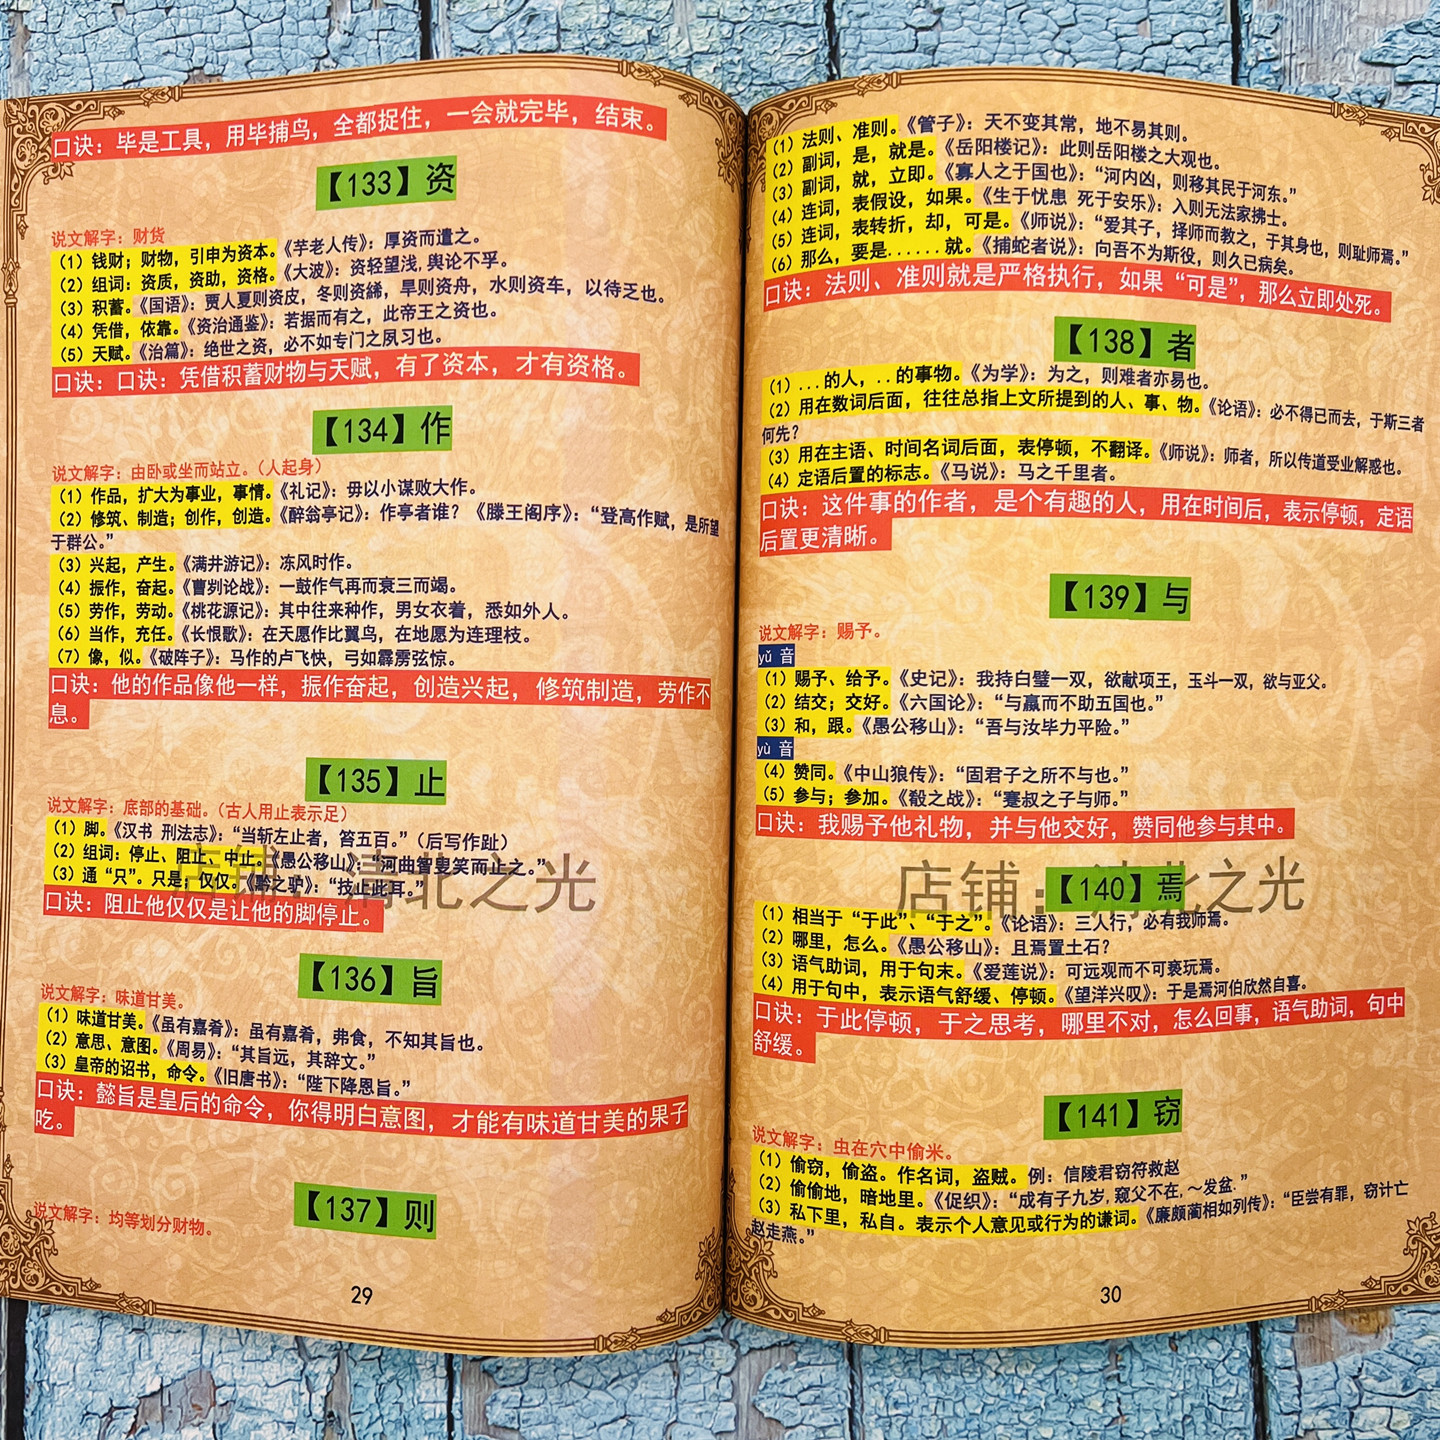 口诀：毕是工具，用毕捕鸟，全都捉住，一会就完毕，结束。
【133】资
说文解字：财货
（1）钱财；财物，引申为资本。《芋老人传》：厚资而遣之。
（2）组词：资质，资助，资格。《大波》：资轻望浅，舆论不孚。
（3）积蓄。《国语》：贾人夏则资皮，冬则资絺，旱则资舟，水则资车，以待乏也。
（4）凭借，依靠。《资治通鉴》：若据而有之，此帝王之资也。
（5）天赋。《治篇》：绝世之资，必不如专门之夙习也。
口诀：口诀：凭借积蓄财物与天赋，有了资本，才有资格。
【134】作
说文解字：由卧或坐而站立。（人起身）
（1）作品，扩大为事业，事情。《礼记》：毋以小谋败大作。
（2）修筑、制造；创作，创造。《醉翁亭记》：作亭者谁？《滕王阁序》：“登高作赋，是所望
于群公。”
（3）兴起，产生。《满井游记》：冻风时作。
（4）振作，奋起。《曹刿论战》：一鼓作气再而衰三而竭。
（5）劳作，劳动。《桃花源记》：其中往来种作，男女衣着，悉如外人。
（6）当作，充任。《长恨歌》：在天愿作比翼鸟，在地愿为连理枝。
（7）像，似。《破阵子》：马作的卢飞快，弓如霹雳弦惊。
口诀：他的作品像他一样，振作奋起，创造兴起，修筑制造，劳作不
息。
【135】止
说文解字：底部的基础。（古人用止表示足）
（1）脚。《汉书 刑法志》：“当斩左止者，笞五百。”（后写作趾）
（2）组词：停止、阻止、中止。《愚公移山》：“河曲智叟笑而止之。”
（3）通“只”。只是；仅仅。《黔之驴》：“技止此耳。”
口诀：阻止他仅仅是让他的脚停止。
店铺：清北之光
【136】旨
说文解字：味道甘美。
（1）味道甘美。《虽有嘉肴》：虽有嘉肴，弗食，不知其旨也。
（2）意思、意图。《周易》：“其旨远，其辞文。”
（3）皇帝的诏书，命令。《旧唐书》：“陛下降恩旨。”
口诀：懿旨是皇后的命令，你得明白意图，才能有味道甘美的果子
吃。
【137】则
说文解字：均等划分财物。
29
（1）法则、准则。《管子》：天不变其常，地不易其则。
（2）副词，是，就是。《岳阳楼记》：此则岳阳楼之大观也。
（3）副词，就，立即。《寡人之于国也》：“河内凶，则移其民于河东。”
（4）连词，表假设，如果。《生于忧患 死于安乐》：入则无法家拂士。
（5）连词，表转折，却，可是。《师说》：“爱其子，择师而教之，于其身也，则耻师焉。”
（6）那么，要是......就。《捕蛇者说》：向吾不为斯役，则久已病矣。
口诀：法则、准则就是严格执行，如果“可是”，那么立即处死。
【138】者
（1）...的人，..的事物。《为学》：为之，则难者亦易也。
（2）用在数词后面，往往总指上文所提到的人、事、物。《论语》：必不得已而去，于斯三者
何先？
（3）用在主语、时间名词后面，表停顿，不翻译。《师说》：师者，所以传道受业解惑也。
（4）定语后置的标志。《马说》：马之千里者。
口诀：这件事的作者，是个有趣的人，用在时间后，表示停顿，定语
后置更清晰。
【139】与
说文解字：赐予。
yǔ 音
（1）赐予、给予。《史记》：我持白璧一双，欲献项王，玉斗一双，欲与亚父。
（2）结交；交好。《六国论》：“与嬴而不助五国也。”
（3）和，跟。《愚公移山》：“吾与汝毕力平险。”
yù 音
（4）赞同。《中山狼传》：“固君子之所不与也。”
（5）参与；参加。《殽之战》：“蹇叔之子与师。”
口诀：我赐予他礼物，并与他交好，赞同他参与其中。
店铺：清北之光
【140】焉
（1）相当于“于此”、“于之”。《论语》：三人行，必有我师焉。
（2）哪里，怎么。《愚公移山》：且焉置土石？
（3）语气助词，用于句末。《爱莲说》：可远观而不可亵玩焉。
（4）用于句中，表示语气舒缓、停顿。《望洋兴叹》：于是焉河伯欣然自喜。
口诀：于此停顿，于之思考，哪里不对，怎么回事，语气助词，句中
舒缓。
【141】窃
说文解字：虫在穴中偷米。
（1）偷窃，偷盗。作名词，盗贼。例：信陵君窃符救赵
（2）偷偷地，暗地里。《促织》：“成有子九岁，窥父不在，～发盆.”
（3）私下里，私自。表示个人意见或行为的谦词。《廉颇蔺相如列传》：“臣尝有罪，窃计亡
赵走燕。”
30